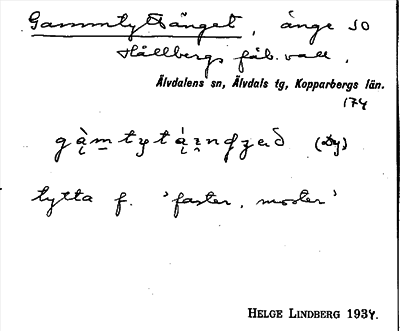 Gammtyttänget, änge SO
Hållbergs fäb. vall.
Älvdalens sn, Älvdals tg, Kopparbergs län.
174
(Dy)
tytta f. 'faster, moster'
HELGE LINDBERG 1934.